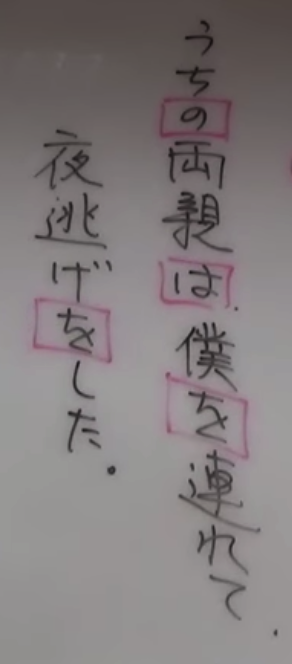 うちの両親は僕を連れて.
夜逃げをした.